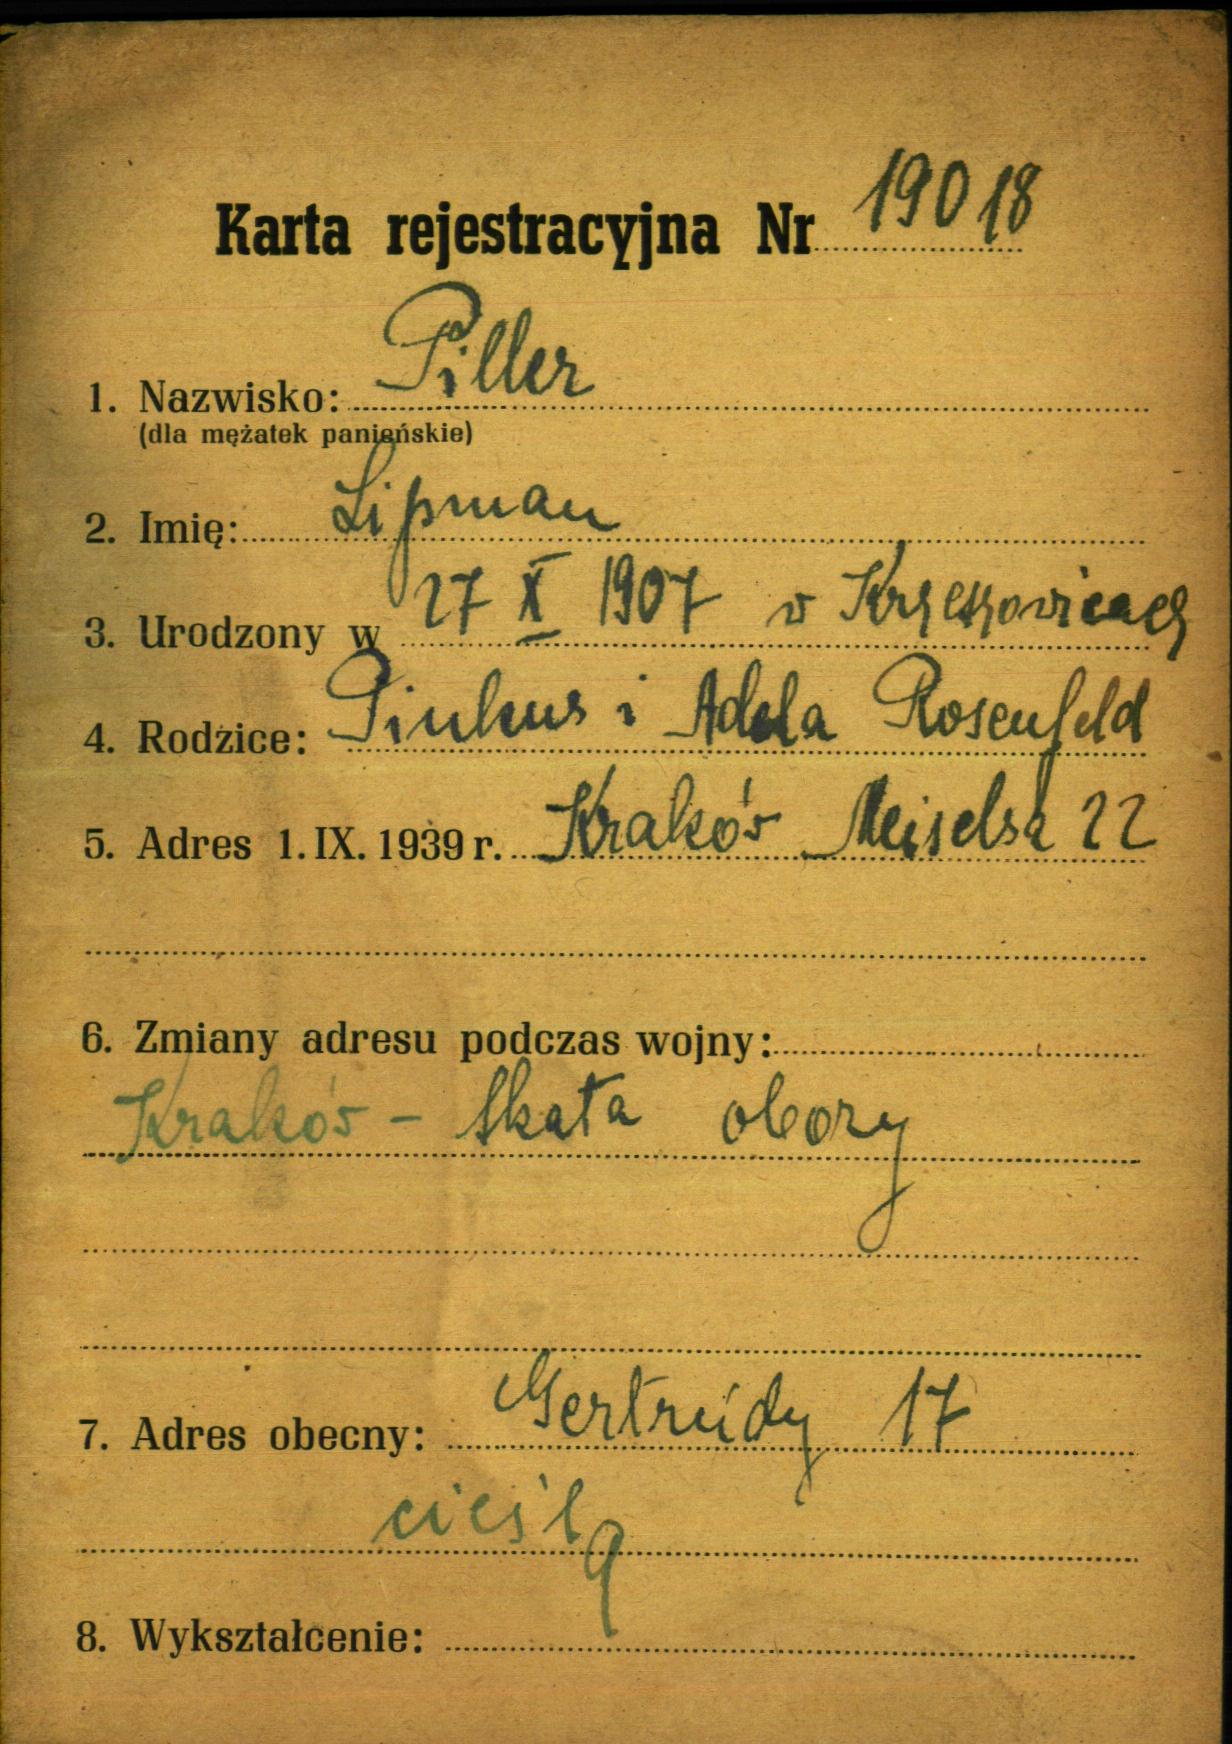 Karta rejestracyjna Nr 19018
1. Nazwisko: Piller
(dla mężatek panieńskie)
2. Imię: Lipman
3. Urodzony w 27 X 1907 w Krzeszowicach
4. Rodzice: Pinkus i Adela Rosenfeld
5. Adres 1. IX. 1939 r. Kraków Meiselsa 22
6. Zmiany adresu podczas wojny:
Kraków - Skała obozy
7. Adres obecny: Gertrudy 17
cieśla
8. Wykształcenie: